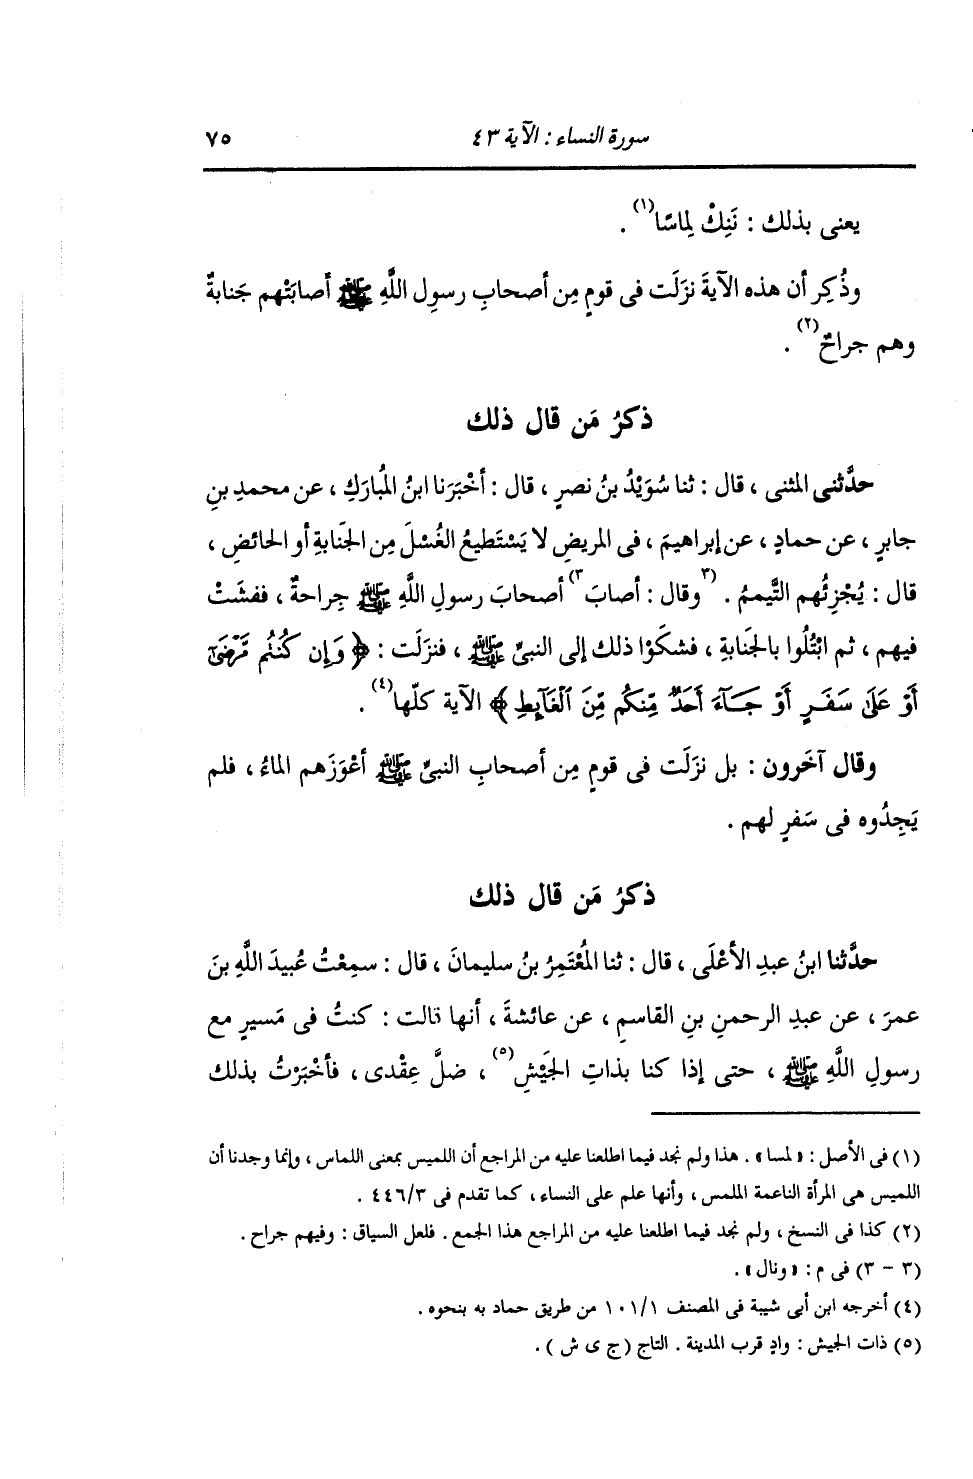 سورة النساء : الآية ٤٣ ٧٥
يعنى بذلك : نَنِكْ لِماسًا(١) .
وذُكِر أن هذه الآيةَ نزَلَت فى قومٍ مِن أصحابِ رسولِ اللَّهِ ﷺ أصابَتْهم جَنابةٌ
وهم جراحٌ(٢) .
ذكرُ مَن قال ذلك
حدَّثنى المثنى ، قال : ثنا سُوَيْدُ بنُ نصرٍ ، قال : أخْبَرَنا ابنُ المُبارَكِ ، عن محمدِ بنِ
جابرٍ ، عن حمادٍ ، عن إبراهيمَ ، فى المريضِ لا يَسْتَطيعُ الغُسْلَ مِن الجَنابةِ أو الحائضِ ،
قال : يُجْزِئُهم التَّيممُ . (٣وقال : أصابَ٣) أصحابَ رسولِ اللَّهِ ﷺ جِراحةٌ ، ففشَتْ
فيهم ، ثم ابْتُلُوا بالجَنابةِ ، فشكَوْا ذلك إلى النبىِّ ﷺ ، فنزَلَت : ﴿ وَإِن كُنتُم مَّرْضَىٰٓ
أَوْ عَلَىٰ سَفَرٍ أَوْ جَآءَ أَحَدٌ مِّنكُم مِّنَ ٱلْغَآئِطِ ﴾ الآية كلّها(٤) .
وقال آخَرون : بل نزَلَت فى قومٍ مِن أصحابِ النبىِّ ﷺ أعْوَزَهم الماءُ ، فلم
يَجِدُوه فى سَفرٍ لهم .
ذكرُ مَن قال ذلك
حدَّثنا ابنُ عبدِ الأعْلَى ، قال : ثنا المُعْتَمِرُ بنُ سليمانَ ، قال : سمِعْتُ عُبيدَ اللَّهِ بنَ
عمرَ ، عن عبدِ الرحمنِ بنِ القاسمِ ، عن عائشةَ ، أنها قالت : كنتُ فى مَسيرٍ مع
رسولِ اللَّهِ ﷺ ، حتى إذا كنا بذاتِ الجَيْشِ(٥) ، ضلَّ عِقْدى ، فأخْبَرْتُ بذلك
(١) فى الأصل : « لمسا » . هذا ولم نجد فيما اطلعنا عليه من المراجع أن اللميس بمعنى اللماس ، وإنما وجدنا أن
اللميس هى المرأة الناعمة الملمس ، وأنها علم على النساء ، كما تقدم فى ٤٤٦/٣ .
(٢) كذا فى النسخ ، ولم نجد فيما اطلعنا عليه من المراجع هذا الجمع . فلعل السياق : وفيهم جراح .
(٣ - ٣) فى م : « ونال » .
(٤) أخرجه ابن أبى شيبة فى المصنف ١٠١/١ من طريق حماد به بنحوه .
(٥) ذات الجيش : وادٍ قرب المدينة . التاج ( ج ى ش ) .